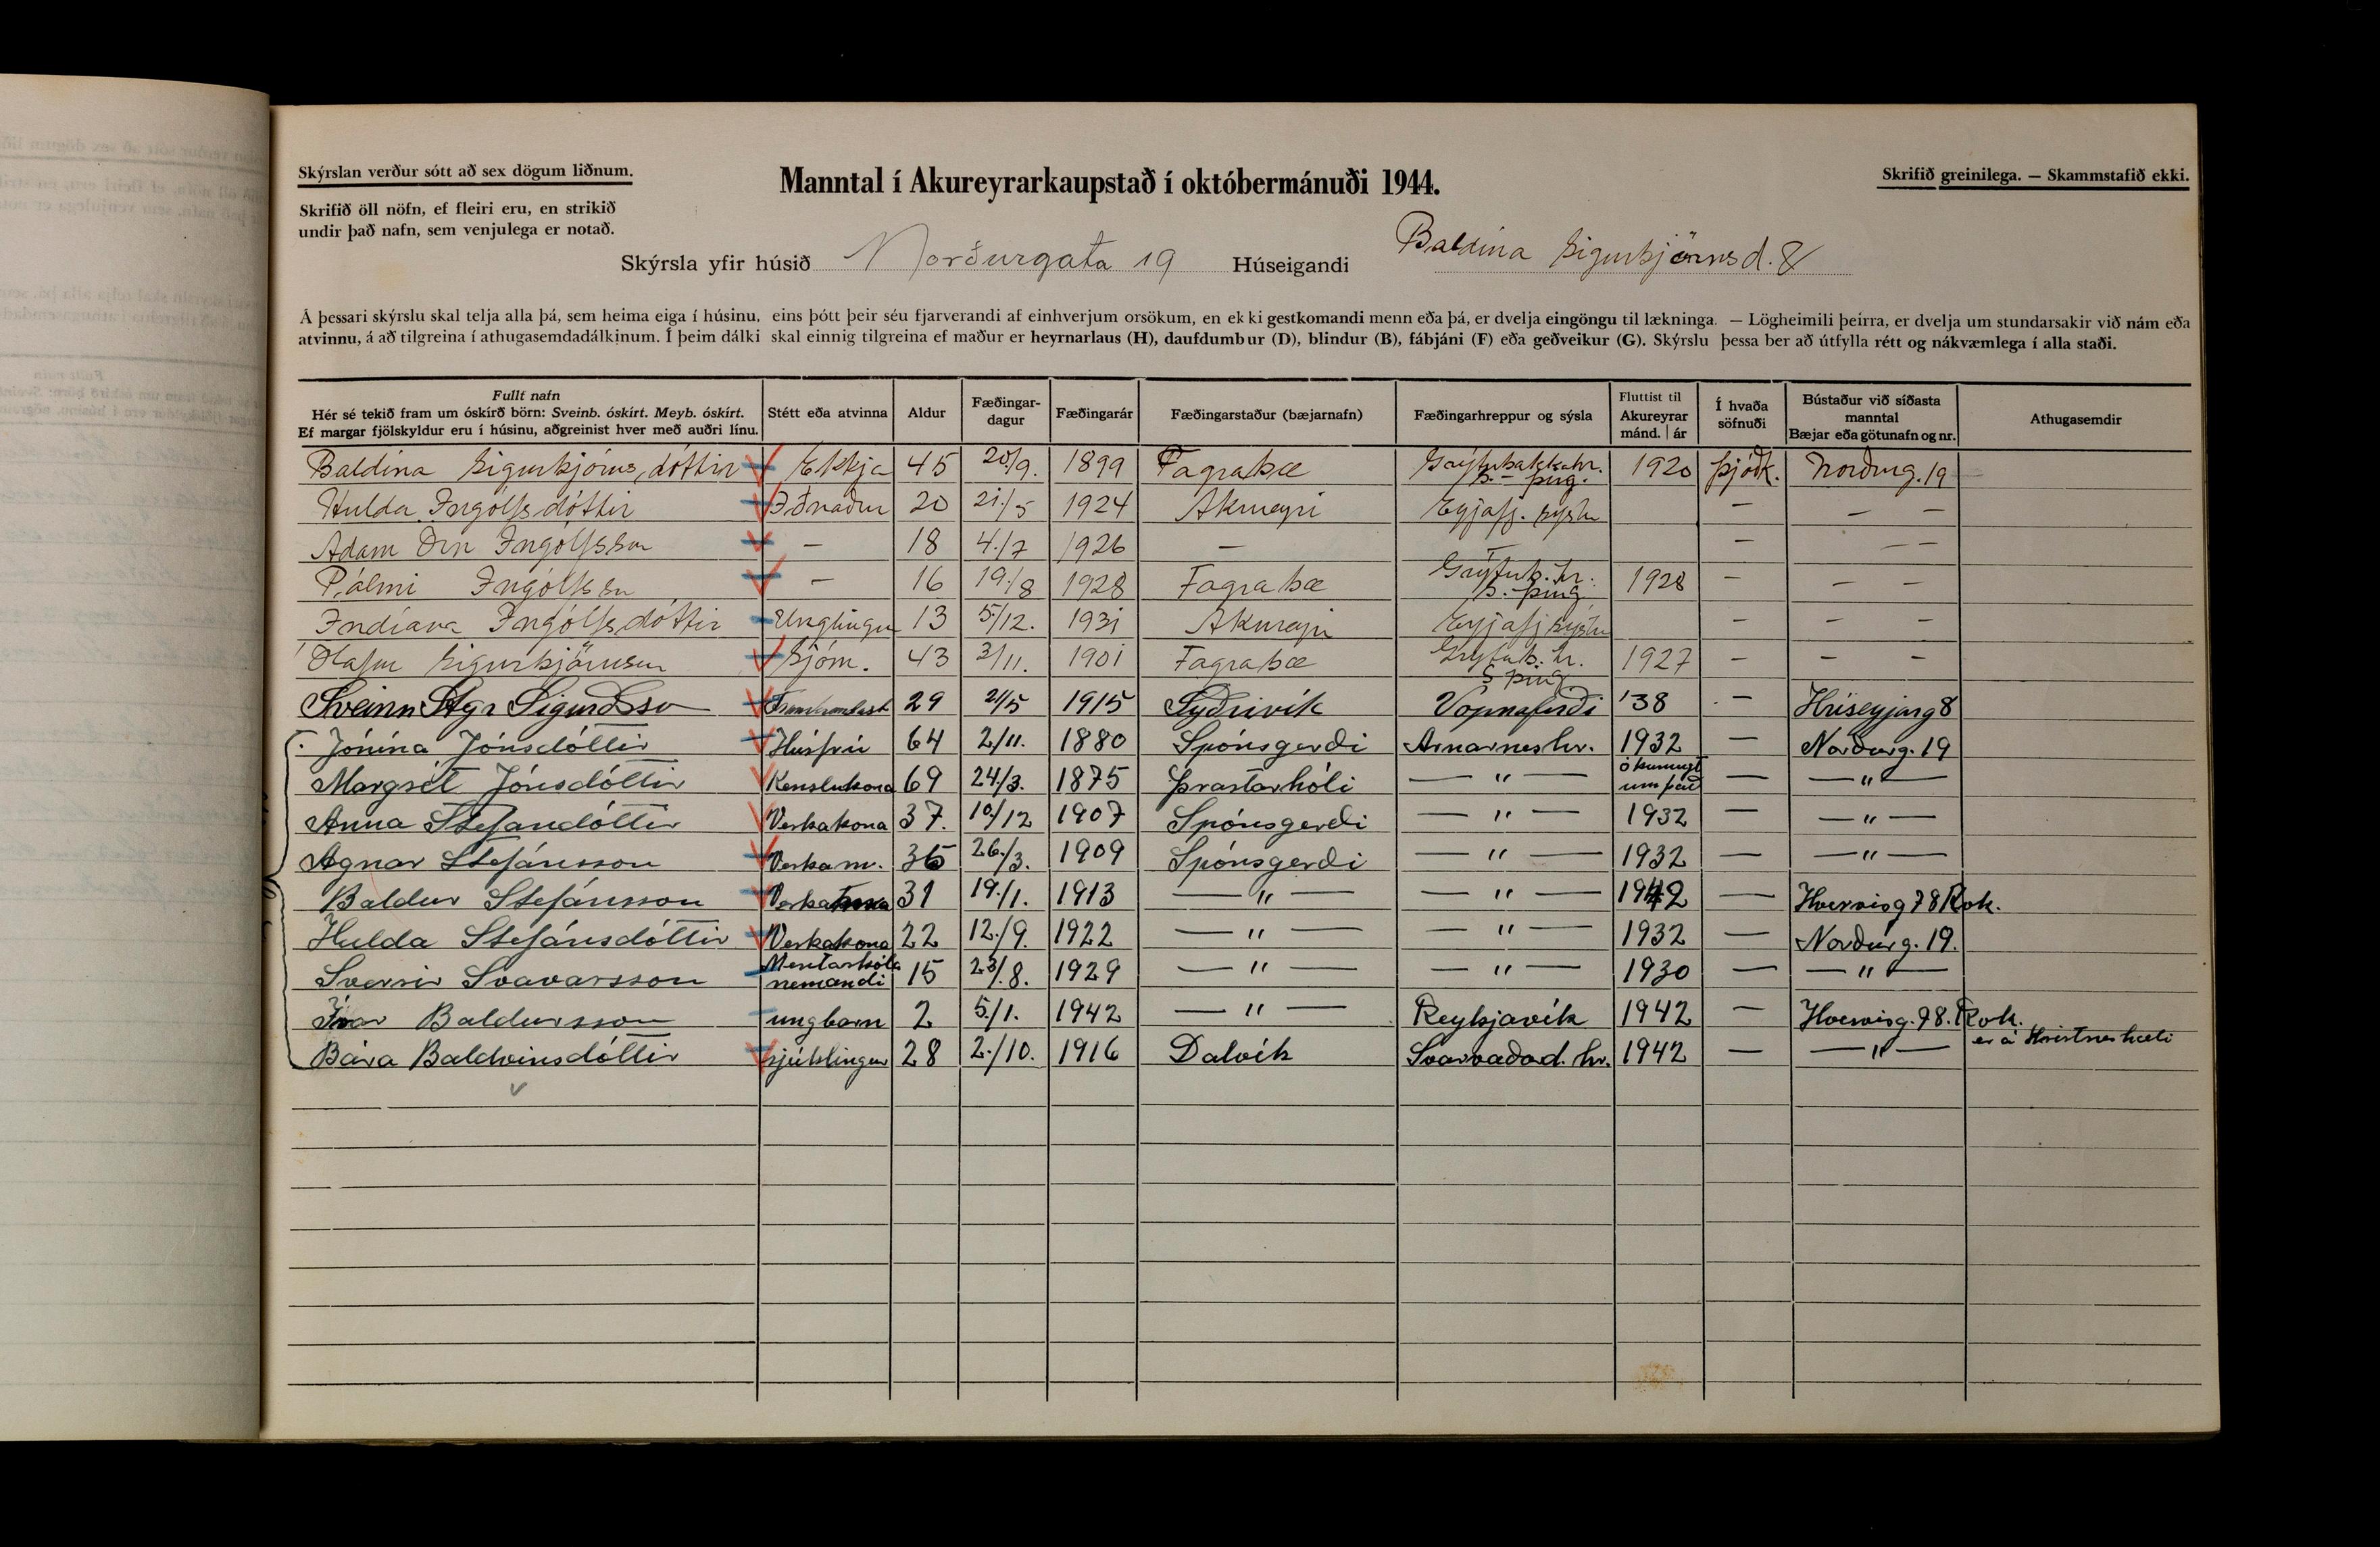 Skýrslan verður sótt að sex dögum liðnum.
Manntal í Akureyrarkaupstað í októbermánuði 1944.
Skrifið greinilega. — Skammstafið ekki.
Skrifið öll nöfn, ef fleiri eru, en strikið
undir það nafn, sem venjulega er notað.
Skýrsla yfir húsið Norðurgata 19 Húseigandi Baldína Sigurbjörnsd. &
Á þessari skýrslu skal telja alla þá, sem heima eiga í húsinu, eins þótt þeir séu fjarverandi af einhverjum orsökum, en ekki gestkomandi menn eða þá, er dvelja eingöngu til lækninga. — Lögheimili þeirra, er dvelja um stundarsakir við nám eða
atvinnu, á að tilgreina í athugasemdadálkinum. Í þeim dálki skal einnig tilgreina ef maður er heyrnarlaus (H), daufdumbur (D), blindur (B), fábjáni (F) eða geðveikur (G). Skýrslu þessa ber að útfylla rétt og nákvæmlega í alla staði.
Fullt nafn
Hér sé tekið fram um óskírð börn: Sveinb. óskírt. Meyb. óskírt.
Ef margar fjölskyldur eru í húsinu, aðgreinist hver með auðri línu.
Stétt eða atvinna
Aldur
Fæðingar-
dagur
Fæðingarár
Fæðingarstaður (bæjarnafn)
Fæðingarhreppur og sýsla
Fluttist til
Akureyrar
mánd. | ár
Í hvaða
söfnuði
Bústaður við síðasta
manntal
Bæjar eða götunafn og nr.
Athugasemdir
Baldína Sigurbjörnsdóttir Ekkja 45 20/9. 1899 Fagrabæ Grýtubakkahr. S. - þing. 1920 þjóðk. Norðurg. 19
Hulda Ingólfsdóttir Iðnaður 20 21/5 1924 Akureyri Eyjafj. sýslu — — —
Adam Örn Ingólfsson — 18 4/7 1926 — — — — —
Pálmi Ingólfsson — 16 19/8 1928 Fagrabæ Grýtub. hr. S. - þing 1928 — — —
Indíana Ingólfsdóttir Unglingur 13 5/12. 1931 Akureyri Eyjafj sýslu — — —
Ólafur Sigurbjörnsson Sjóm. 43 3/11. 1901 Fagrabæ Grýtub. hr. S þing 1927 — — —
Sveinn Stgr Sigurðsson 29 21/5 1915 Syðrivík Vopnafirði '38 — Hríseyjarg 8
Jónína Jónsdóttir Húsfrú 64 2/11. 1880 Spónsgerði Arnarneshr. 1932 — Norðurg. 19
Margrét Jónsdóttir Kenslukona 69 24/3. 1875 Þrastarhóli — " — ókunnugt um það — — " —
Anna Stefansdóttir Verkakona 37. 10/12 1907 Spónsgerði — " — 1932 — — " —
Agnar Stefánsson Verkam. 35 26/3. 1909 Spónsgerði — " — 1932 — — " —
Baldur Stefánsson 31 19/1. 1913 — " — — " — 1942 — Hvervisg 78 Rvk.
Hulda Stefánsdóttir Verkakona 22 12/9. 1922 — " — — " — 1932 — Norðurg. 19.
Sverrir Svavarsson Mentaskóla nemandi 15 23/8. 1929 — " — — " — 1930 — — " —
Ívar Baldursson ungbarn 2 5/1. 1942 — " — Reykjavík 1942 — Hvervisg. 78. Rvk.
Bára Baldvinsdóttir sjúklingur 28 2/10. 1916 Dalvík Svarvaðad. hr. 1942 — — " — er á Kristneshæli